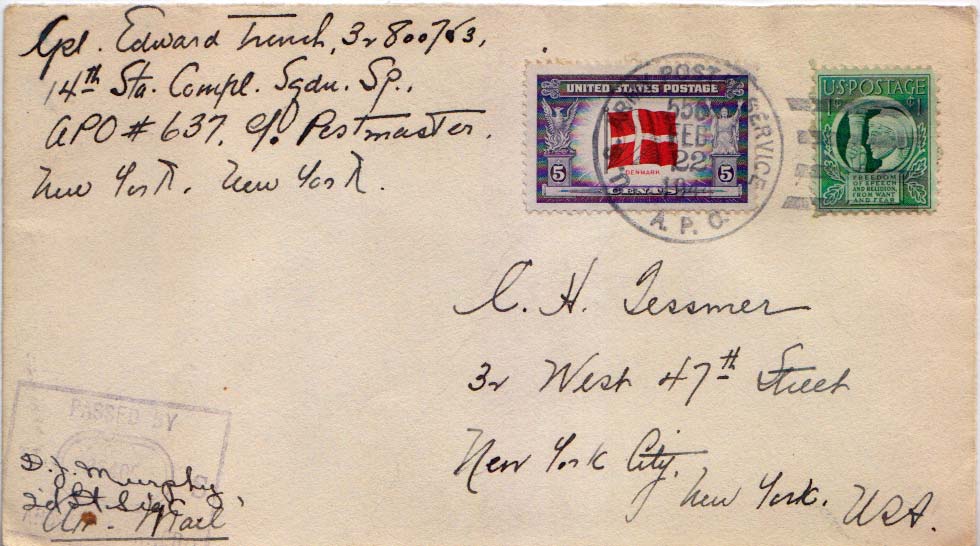 Cpl. Edward Trench, 32800763,
14th Sta. Compl. Sqdn. Sp.,
APO # 637, c/o Postmaster.
New York, New York.
UNITED STATES POSTAGE
5 DENMARK 5
ARMY POSTAL SERVICE
FEB
22
A. P. O.
U.S. POSTAGE
1¢ 1¢
FREEDOM
OF SPEECH
AND RELIGION,
FROM WANT
AND FEAR
C. H. Tessmer
32 West 47th Street
New York City,
New York. USA.
PASSED BY
D. J. Murphy
2d Lt Sig C
Air Mail